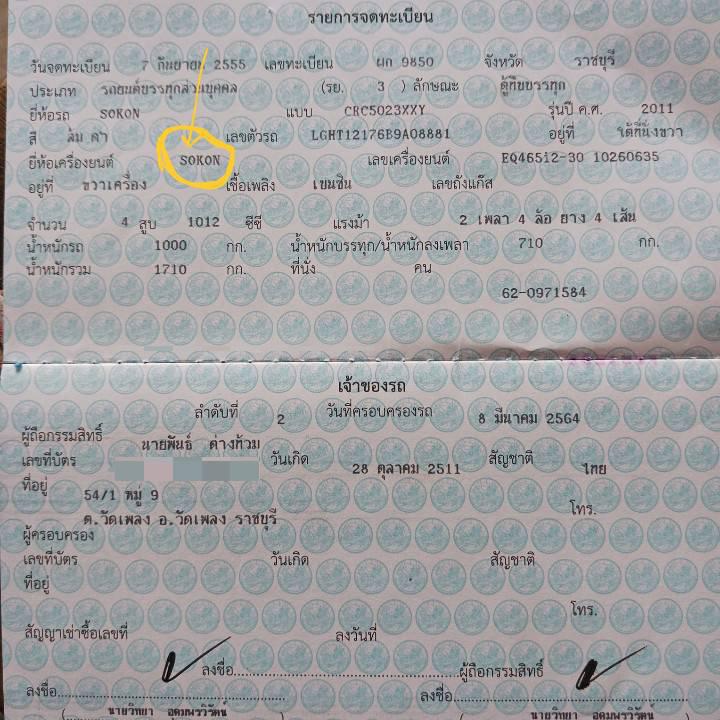 รายการจดทะเบียน
วันจดทะเบียน 7 กันยายน 2555 เลขทะเบียน ผก 9850 จังหวัด ราชบุรี
ประเภท รถยนต์บรรทุกส่วนบุคคล (รย. 3 ) ลักษณะ ตู้ทึบบรรทุก
ยี่ห้อรถ SOKON แบบ CRC5023XXY รุ่นปี ค.ศ. 2011
สี ส้ม ดำ เลขตัวรถ LGHT12176B9A08881 อยู่ที่ ใต้ที่นั่งขวา
ยี่ห้อเครื่องยนต์ SOKON เลขเครื่องยนต์ EQ46512-30 10260635
อยู่ที่ ขวาเครื่อง เชื้อเพลิง เบนซิน เลขถังแก๊ส
จำนวน 4 สูบ 1012 ซีซี แรงม้า 2 เพลา 4 ล้อ ยาง 4 เส้น
น้ำหนักรถ 1000 กก. น้ำหนักบรรทุก/น้ำหนักลงเพลา 710 กก.
น้ำหนักรวม 1710 กก. ที่นั่ง คน
62-0971584
เจ้าของรถ
ลำดับที่ 2 วันที่ครอบครองรถ 8 มีนาคม 2564
ผู้ถือกรรมสิทธิ์ นายพันธ์ ด่างท้วม
เลขที่บัตร วันเกิด 28 ตุลาคม 2511 สัญชาติ ไทย
ที่อยู่ 54/1 หมู่ 9 โทร.
ต.วัดเพลง อ.วัดเพลง ราชบุรี
ผู้ครอบครอง
เลขที่บัตร วันเกิด สัญชาติ
ที่อยู่
โทร.
สัญญาเช่าซื้อเลขที่ ลงวันที่
ลงชื่อ ผู้ถือกรรมสิทธิ์
ลงชื่อ ลงชื่อ
( นายวิทยา อุดมพรวิรัตน์ ( นายวิทยา อุดมพรวิรัตน์